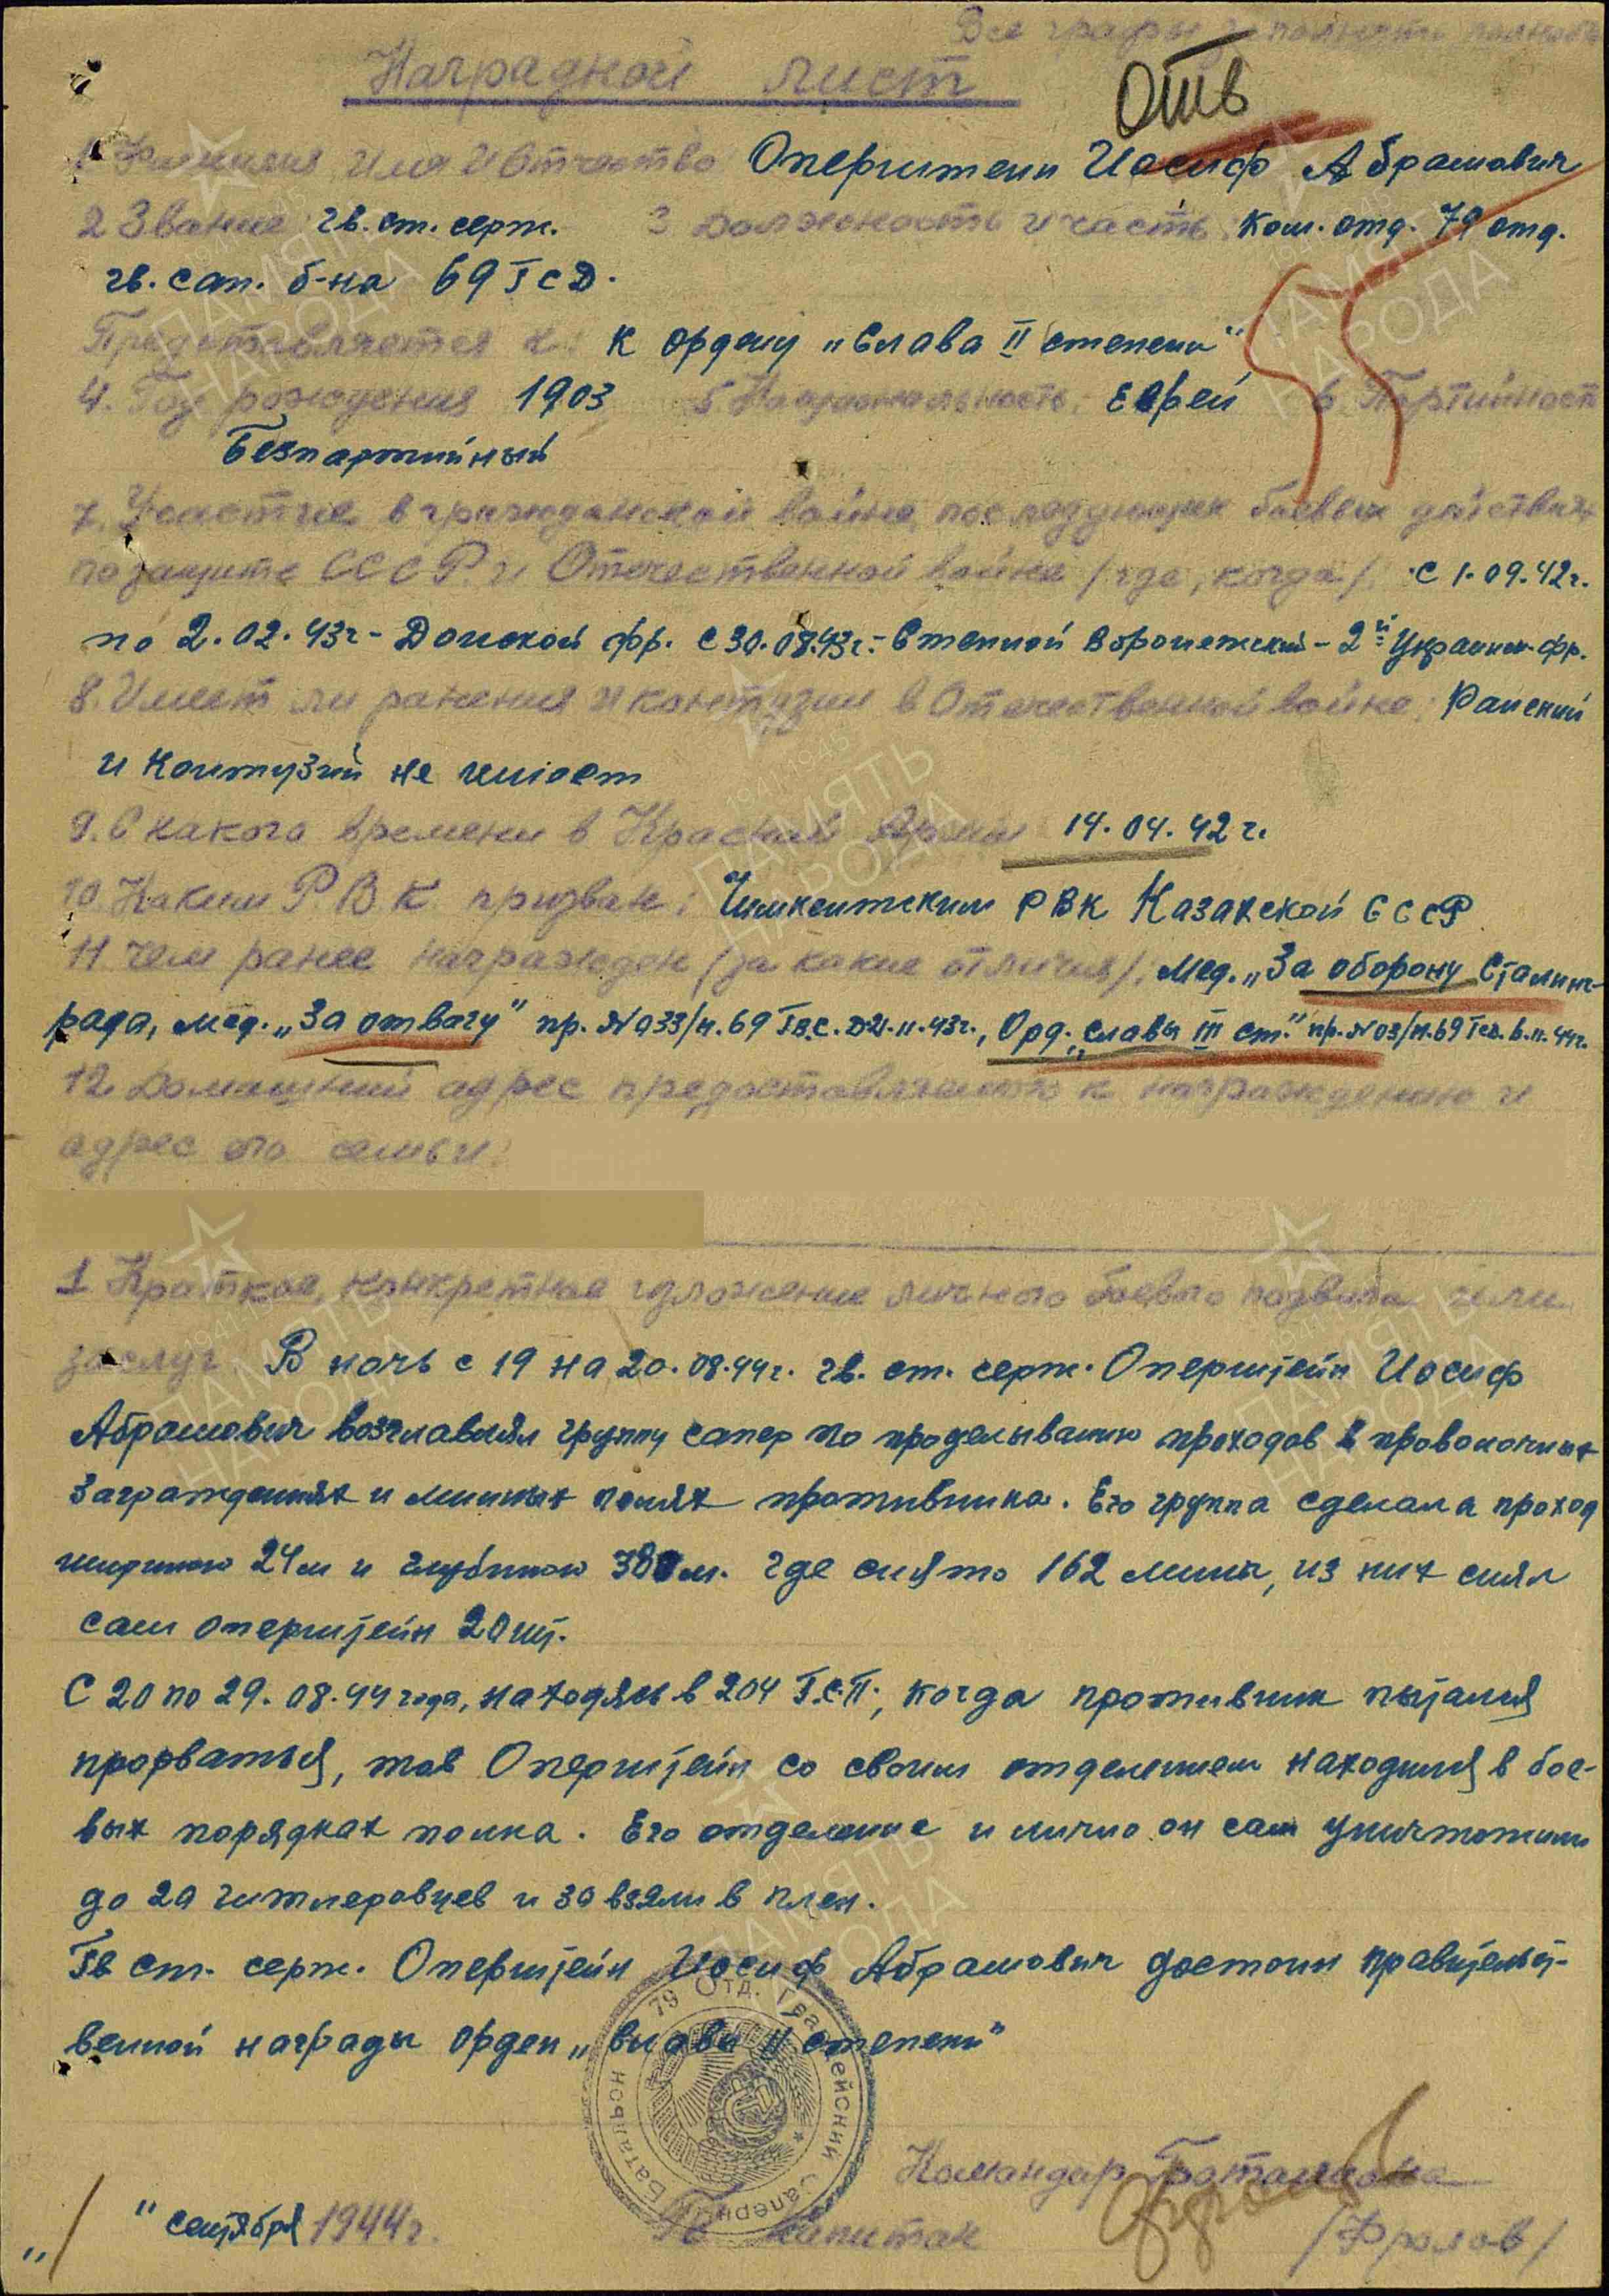 Все графы заполнять полностью
Наградной лист
ОТВ
1 Фамилия, Имя и Отчество Оперштейн Иосиф Абрамович
2 Звание: гв. ст. серж. 3 Должность и часть: Ком. отд. 79 отд.
гв. сап. б-на 69 ГСД.
Представляется к: К ордену „Слава II степени"
4. Год рождения 1903 5. Национальность: Еврей 6 Партийность
Безпартийный
7. Участие в гражданской войне, последующих боевых действиях
по защите СССР и Отечественной войне /где, когда/ с 1.09.42г.
по 2.02.43г - Донской фр. С 30.08.43г.- Степной Воронежский - 2й Украинск. фр.
8. Имеет ли ранения и контузии в Отечественной войне: Ранений
и контузий не имеет
9. С какого времени в Красной Армии 14.04.42г.
10. Каким РВК призван: Чимкентским РВК Казахской ССР
11 Чем ранее награжден /за какие отличия/: Мед. „За оборону Сталинг-
рада, мед. „За отвагу" пр. №033/н. 69 Гв.С.Д 21.11.43г., Орд. „Славы III ст." пр. №03/н. 69 Гсд. 6.11.44г.
12 Домашний адрес предоставляемого к награждению и
адрес его семьи:
1 Краткое, конкретное изложение личного боевого подвига или
заслуг В ночь с 19 на 20.08.44г. гв. ст. серж. Оперштейн Иосиф
Абрамович возглавлял группу сапер по проделыванию проходов в проволочных
заграждениях и минных полях противника. Его группа сделала проход
шириною 24м и глубиною 380м. где снято 162 мины, из них снял
сам Оперштейн 20 шт.
С 20 по 29.08.44 года, находясь в 204 Г.С.П., когда противник пытался
прорваться, тов Оперштейн со своим отделением находился в бое-
вых порядках полка. Его отделение и лично он сам уничтожили
до 20 гитлеровцев и 30 взяли в плен.
Гв ст. серж. Оперштейн Иосиф Абрамович достоин правительст-
венной награды орден „Славы II степени"
79 Отд. Гвардейский Саперный Батальон
Командир Батальона
„ " сентября 1944г. Гв капитан /Фролов/
ПАМЯТЬ НАРОДА
1941-1945